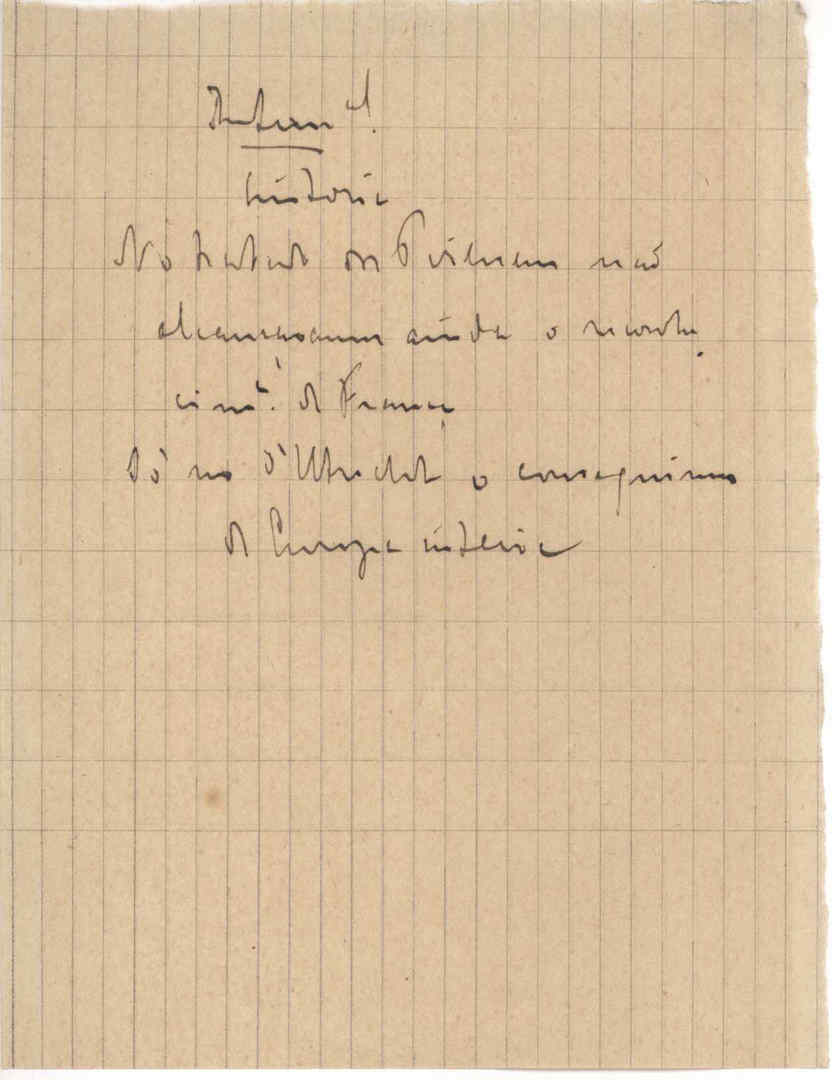 Intern.al
historia
No tratado dos Pirineus não
alcançaram ainda o reconhe
cimto. de França
Só no d'Utrecht o conseguimos
da Europa inteira